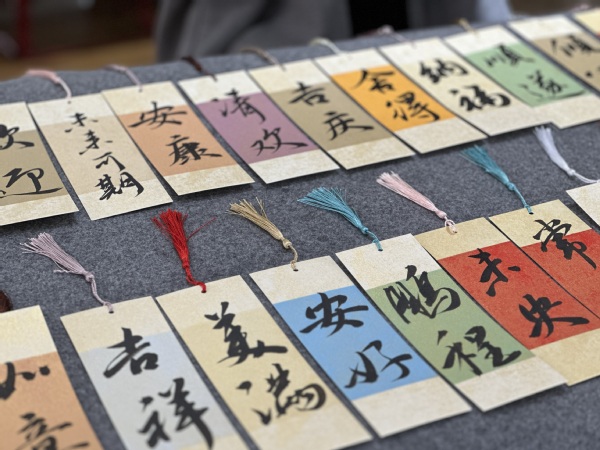 欢迎
未来可期
安康
清欢
吉庆
舍得
纳福
顺遂
如意
吉祥
美满
安好
鹏程
未央
常